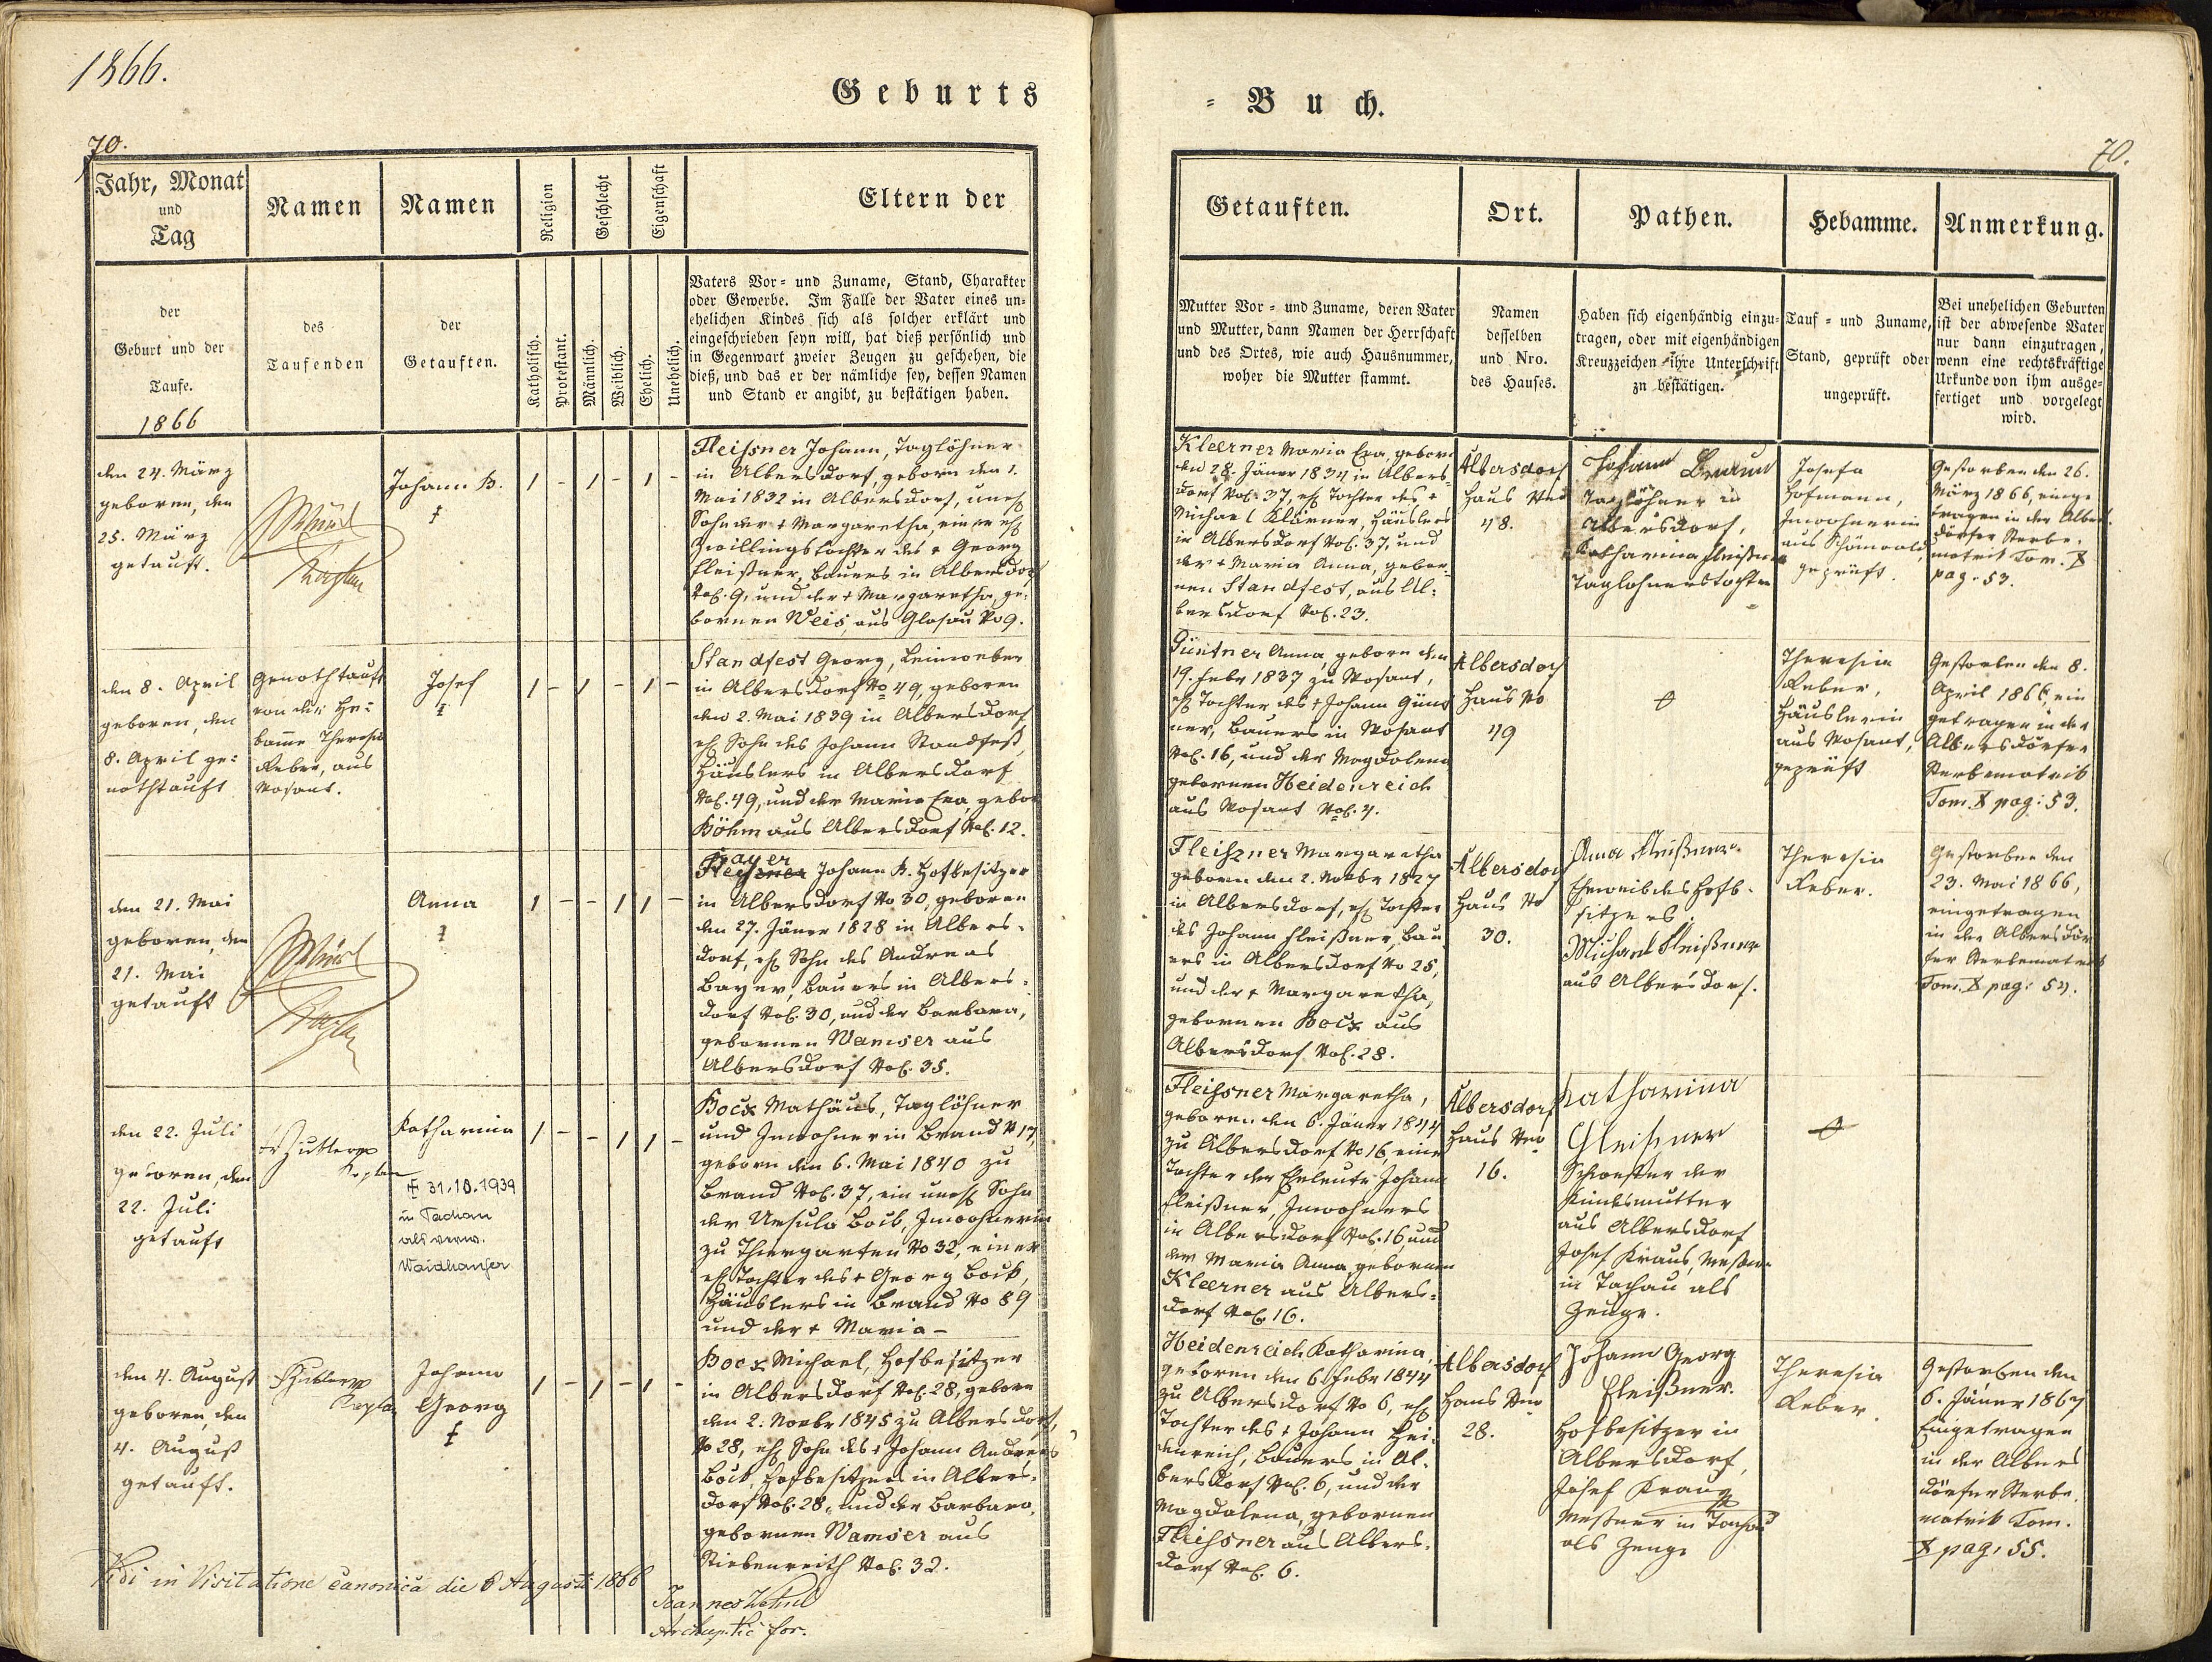 1866.
Geburts
70.
Jahr, Monat
und
Tag
Namen
Namen
Religion
Geschlecht
Eigenschaft
Eltern der
der
Geburt und der
Taufe.
1866
des
Taufenden
der
Getauften.
Katholisch.
Protestant.
Männlich.
Weiblich.
Ehelich.
Unehelich.
Vaters Vor- und Zuname, Stand, Charakter
oder Gewerbe. Im Falle der Vater eines un-
ehelichen Kindes sich als solcher erklärt und
eingeschrieben seyn will, hat dieß persönlich und
in Gegenwart zweier Zeugen zu geschehen, die
dieß, und das er der nämliche sey, dessen Namen
und Stand er angibt, zu bestätigen haben.
den 24. März
geboren, den
25. März
getauft.
Kaplan
Johann B.
†
1 - 1 - 1 -
Fleißner Johann, Taglöhner
in Albersdorf, geboren den 1.
Mai 1832 in Albersdorf, uneh.
Sohn der † Margaretha, einer eh.
Zwillingstochter des † Georg
Fleißner, Bauers in Albersdorf
No. 9, und der † Margaretha, ge-
bornen Weis, aus Glosau No 9.
den 8. April
geboren, den
8. April ge-
nothtauft
Genothtauft
von der He-
bamme Theresia
Reber, aus
Wosant.
Josef
†
1 - 1 - 1 -
Standfest Georg, Leinweber
in Albersdorf No 49, geboren
den 2. Mai 1839 in Albersdorf,
eh. Sohn des Johann Standfest,
Häuslers in Albersdorf
No. 49, und der Maria Eva, gebor
Böhm aus Albersdorf No. 12.
den 21. Mai
geboren, den
21. Mai
getauft
Kaplan
Anna
†
1 - - 1 1 -
Bayer
Fleißner Johann B. Hofbesitzer
in Albersdorf No 30, geboren
den 27. Jäner 1828 in Albers-
dorf, eh. Sohn des Andreas
Bayer, Bauers in Albers-
dorf No. 30, und der Barbara,
gebornen Wamser aus
Albersdorf No. 35.
den 22. Juli
geboren, den
22. Juli
getauft
Kaplan
Katharina
† 31.10.1939
in Tachau
als verw.
Waidhauser
1 - - 1 1 -
Bock Mathäus, Taglöhner
und Inwohner in Brand No 17,
geboren den 6. Mai 1840 zu
Brand No. 37, ein uneh. Sohn
der Ursula Bock, Inwohnerin
zu Thiergarten No 32, einer
eh. Tochter des † Georg Bock,
Häuslers in Brand No 89
und der † Maria -
den 4. August
geboren, den
4. August
getauft.
Kaplan
Johann
Georg
†
1 - 1 - 1 -
Bock Michael, Hofbesitzer
in Albersdorf No. 28, geboren
den 2. Novbr 1845 zu Albersdorf,
No 28, eh. Sohn des † Johann Andreas
Bock, Hofbesitzers in Albers-
dorf No. 28, und der Barbara,
gebornen Wamser aus
Stiebenreith No. 32.
Vidi in Visitatione canonica die 6 Augusti 1866
Joannes
for.
- Buch.
70.
Getauften.
Ort.
Pathen.
Hebamme.
Anmerkung.
Mutter Vor- und Zuname, deren Vater
und Mutter, dann Namen der Herrschaft
und des Ortes, wie auch Hausnummer,
woher die Mutter stammt.
Namen
desselben
und Nro.
des Hauses.
Haben sich eigenhändig einzu-
tragen, oder mit eigenhändigen
Kreuzzeichen ihre Unterschrift
zu bestätigen.
Tauf- und Zuname,
Stand, geprüft oder
ungeprüft.
Bei unehelichen Geburten
ist der abwesende Vater
nur dann einzutragen,
wenn eine rechtskräftige
Urkunde von ihm ausge-
fertiget und vorgelegt
wird.
Kleerner Maria Eva, geboren
den 28. Jäner 1834 in Albers-
dorf No. 37, eh. Tochter des †
Michael Klärner, Häuslers
in Albersdorf No. 37, und
der † Maria Anna, gebor-
nen Standfest, aus Al-
bersdorf No. 23.
Albersdorf
Haus Nro
48.
Johann Braun
Taglöhner in
Albersdorf,
Katharina Fleißner
Taglöhnerstochter
Josefa
Hofmann,
Inwohnerin
aus Schönwald,
geprüft.
Gestorben den 26.
März 1866, einge-
tragen in der Albers-
dörfer Sterbe-
matrik Tom. X
pag. 53.
Güntner Anna, geboren den
19. Febr 1837 zu Wosant,
eh. Tochter des † Johann Günt
ner, Bauers in Wosant
No. 16, und der Magdalena
gebornen Heidenreich
aus Wosant No. 4.
Albersdorf
Haus No
49
Theresia
Reber,
Häuslerin
aus Wosant,
geprüft
Gestorben den 8.
April 1866, ein
getragen in der
Albersdörfer
Sterbematrik
Tom. X pag: 53.
Fleißner Margaretha
geboren den 2. Novbr 1827
in Albersdorf, eh. Tochter
des Johann Fleißner, Bau
ers in Albersdorf No 25,
und der † Margaretha,
gebornen Bock aus
Albersdorf No. 28.
Albersdorf
Haus No
30.
Anna Fleißner
Eheweib des Hofb-
sitzers
Michael Fleißner
aus Albersdorf.
Theresia
Reber.
Gestorben den
23. Mai 1866,
eingetragen
in der Albersdör
fer Sterbematrik
Tom. X pag: 54.
Fleißner Margaretha,
geboren den 6. Jäner 1844
zu Albersdorf No 16, eine
Tochter der Eheleute Johann
Fleißner, Inwohners
in Albersdorf No. 16, und
der Maria Anna, gebornen
Kleerner aus Albers-
dorf No. 16.
Albersdorf
Haus Nro
16.
Katharina
Fleißner
Schwester der
Kindsmutter
aus Albersdorf
Josef Kraus, Meßner
in Tachau als
Zeuge.
Heidenreich Katharina,
geboren den 6. Febr 1844
zu Albersdorf No 6, eh.
Tochter des † Johann Hei-
denreich, Bauers in Al-
bersdorf No. 6, und der
Magdalena, gebornen
Fleißner aus Albers-
dorf No. 6.
Albersdorf
Haus Nro
28.
Johann Georg
Fleißner.
Hofbesitzer in
Albersdorf,
Josef Kraus
Meßner in Tachau
als Zeuge
Theresia
Reber.
Gestorben den
6. Jäner 1867
Eingetragen
in der Albers
dörfer Sterbe-
matrik Tom.
X pag. 55.